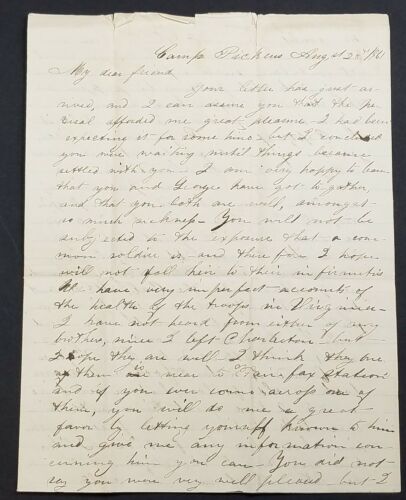 Camp Pickens Aug st 2nd 1861
My dear friend
Your letter has just ar-
rived, and I can assure you that the pe-
rusal afforded me great pleasure - I had been
expecting it for some time - but I concluded
you were waiting until things became
settled with you - I am very happy to learn
that you and George have got to gather,
and that you both are well, amongst
so much sickness - You will not be
subjected to the exposure that a com-
mon soldier is, and therefore I hope
will not fall heir to their infirmities
We have very imperfect accounts of
the health of the troops in Virginia -
I have not heard from either of my
brothers, since I left Charleston - but
I hope they are well - I think they one
of them is near to Fairfax Station
and if you ever come across one of
them, you will do me a great
favor by letting yourself known to him
and give me any information con-
cerning him you can - You did not
say you were very well pleased - but I